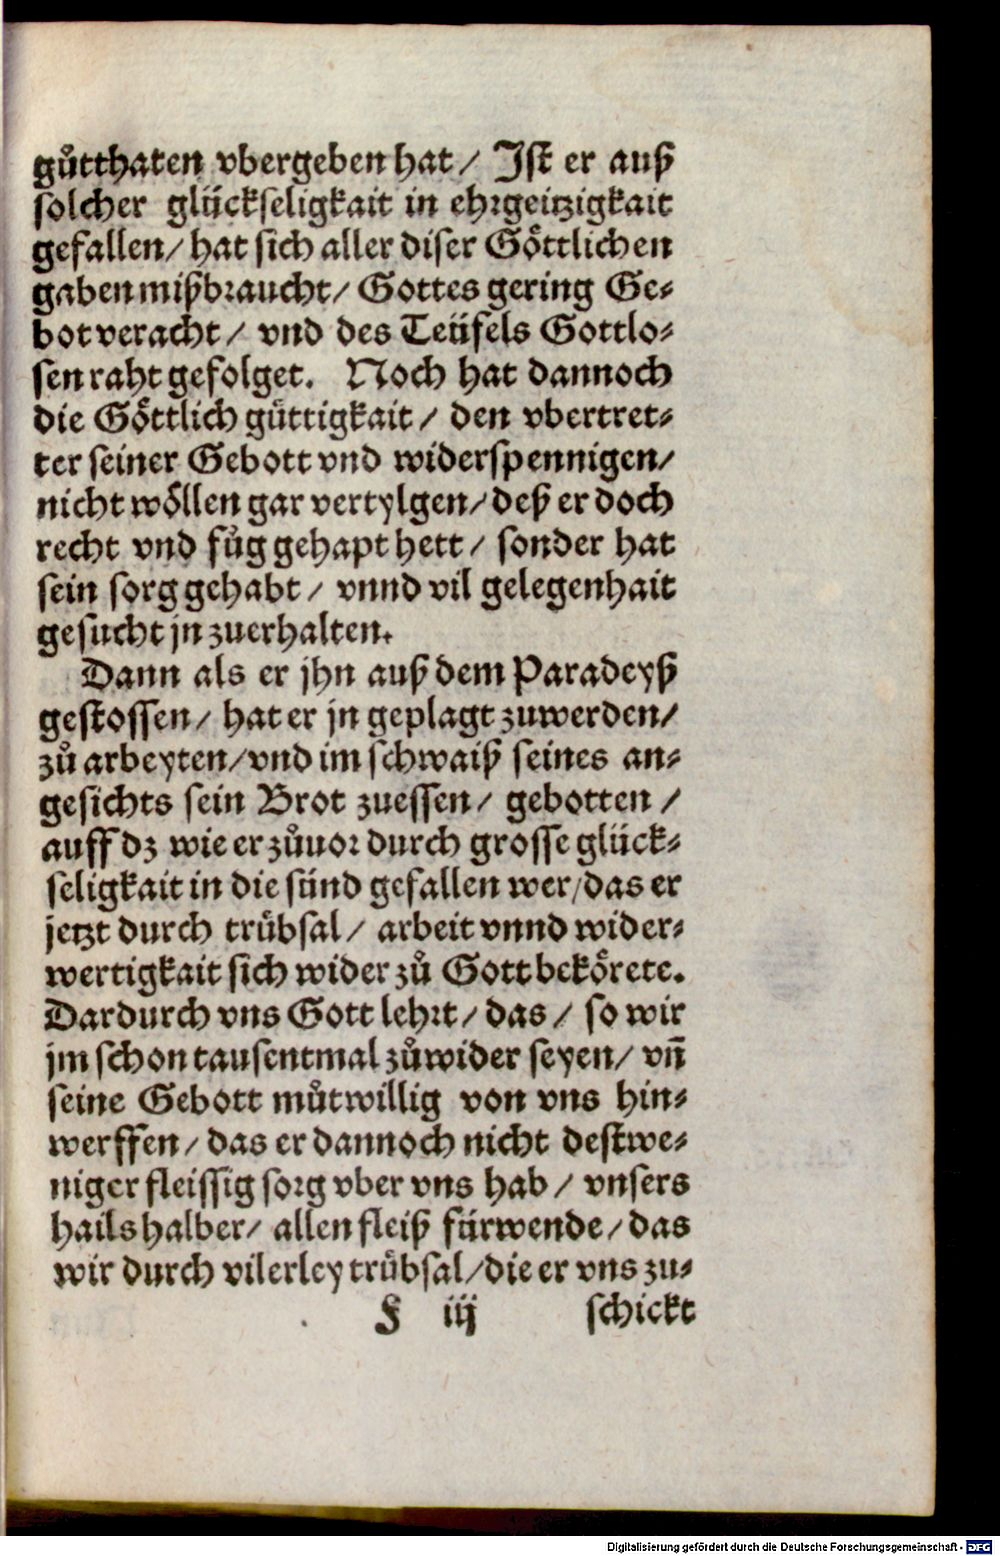 guͤtthaten vbergeben hat / Jst er auß
solcher glückseligkait in ehrgeitzigkait
gefallen / hat sich aller diser Goͤttlichen
gaben mißbraucht / Gottes gering Ge-
bot veracht / vnd des Teüfels Gottlo-
sen raht gefolget. Noch hat dannoch
die Goͤttlich guͤttigkait / den vbertret-
ter seiner Gebott vnd widerspennigen /
nicht woͤllen gar vertylgen / deß er doch
recht vnd fuͦg gehapt hett / sonder hat
sein sorg gehabt / vnnd vil gelegenhait
gesucht jn zuerhalten.
Dann als er jhn auß dem Paradeyß
gestossen / hat er jn geplagt zuwerden /
zuͦ arbeyten / vnd im schwaiß seines an-
gesichts sein Brot zuessen / gebotten /
auff dz wie er zuͦuor durch grosse glück-
seligkait in die sünd gefallen wer / das er
jetzt durch truͤbsal / arbeit vnnd wider-
wertigkait sich wider zuͦ Gott bekoͤrete.
Dardurch vns Gott lehrt / das / so wir
jm schon tausentmal zuͦwider seyen / vn̄
seine Gebott muͦtwillig von vns hin-
werffen / das er dannoch nicht destwe-
niger fleissig sorg vber vns hab / vnsers
hails halber / allen fleiß fürwende / das
wir durch vilerley truͤbsal / die er vns zu-
F iij schickt
Digitalisierung gefördert durch die Deutsche Forschungsgemeinschaft - DFG